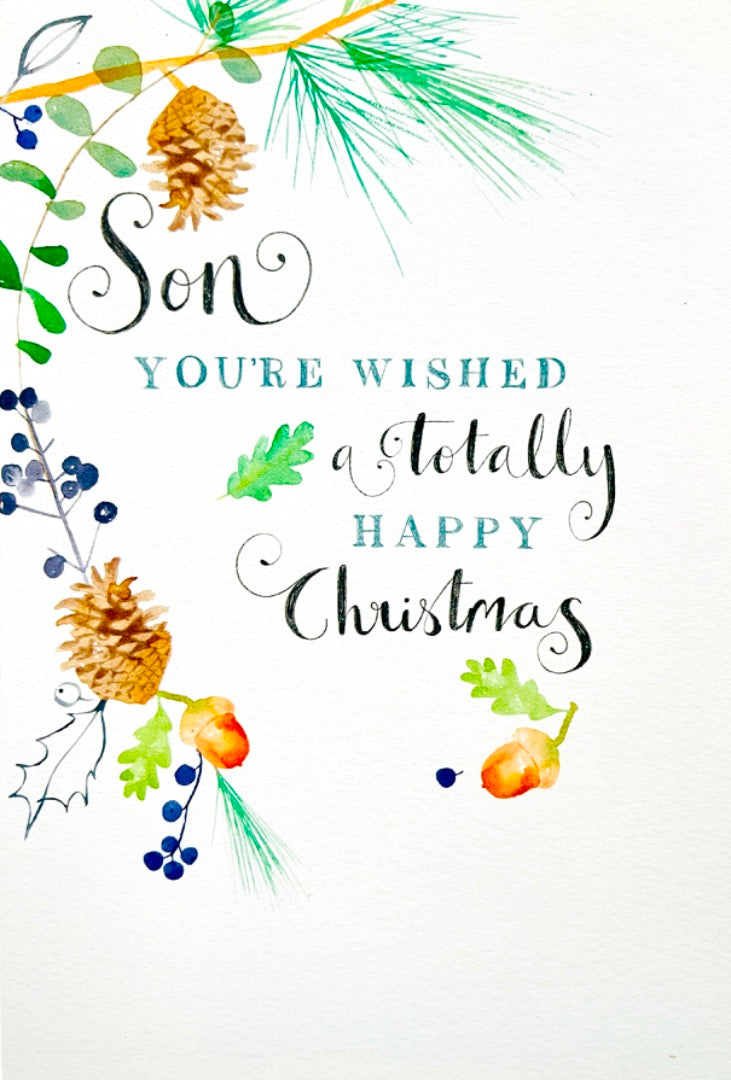 Son
YOU'RE WISHED
a totally
HAPPY
Christmas